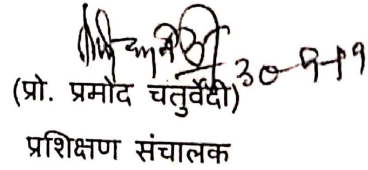 30-9-19
(प्रो. प्रमोद चतुर्वेदी)
प्रशिक्षण संचालक